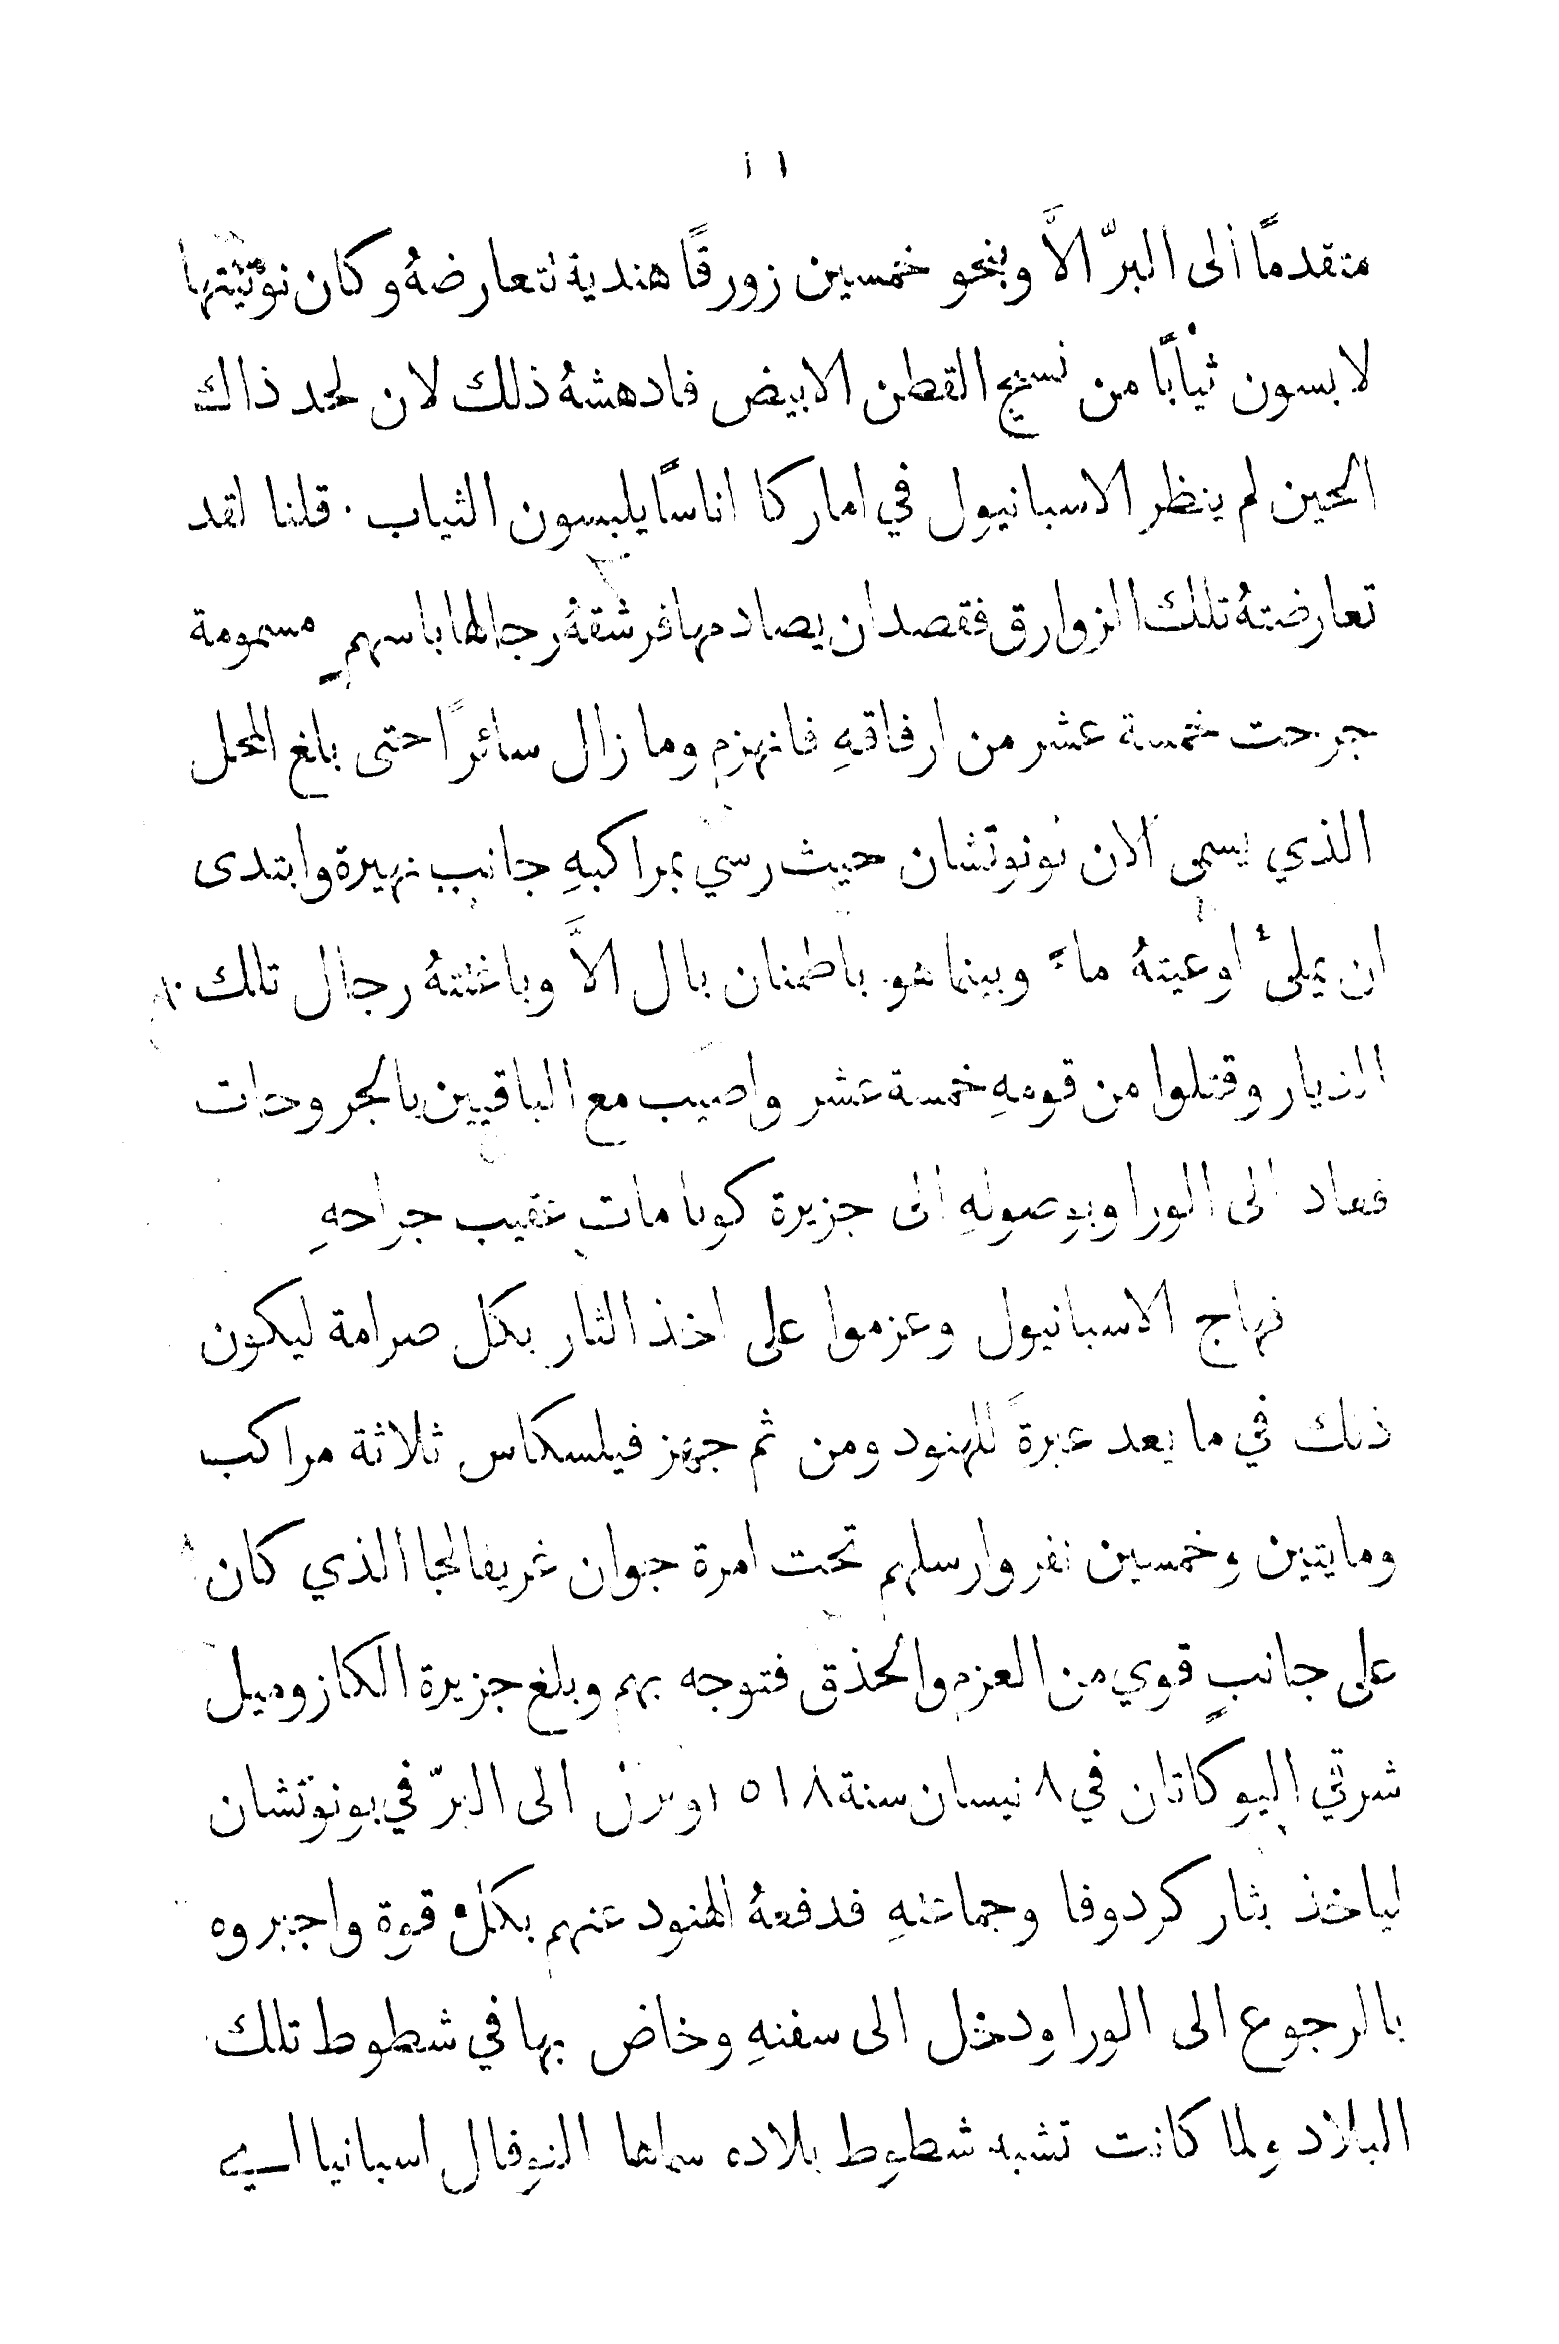 ١١
متقدمًا الى البرّ الاَّ وبنحو خمسين زورقًا هندية تتعارضهُ وكان نوتيتها
لابسون ثيابًا من نسيج القطن الابيض فادهشهُ ذلك لان لحد ذاك
الحين لم ينظر الاسبانيول في اماركا اناسًا يلبسون الثياب . قلنا لقد
تعارضتهُ تلك الزوارق فقصد ان يصادمها فرشقهُ رجالها باسهمٍ مسمومة
جرحت خمسة عشر من ارفاقهِ فانهزم وما زال سائرًا حتى بلغ المحل
الذي يسمى الان نونوتشان حيث رسي بمراكبهِ جانب نهيرة وابتدى
ان يملئ اوعيتهُ ماءً وبينما هو باطمنان بال الاَّ وباغتتهُ رجال تلك
الديار وقتلوا من قومهِ خمسة عشر واصيب مع الباقيين بالجروحات
فعاد الى الورا وبوصولهِ الى جزيرة كوبا مات عقيب جراحهِ
فهاج الاسبانيول وعزموا على اخذ الثار بكل صرامة ليكون
ذلك في ما بعد عبرةً للهنود ومن ثم جهز فيلسكاس ثلاثة مراكب
ومايتين وخمسين نفر وارسلهم تحت امرة جوان غريفالجا الذي كان
على جانبٍ قوي من العزم والحذق فتوجه بهم وبلغ جزيرة الكازوميل
شرقي اليوكاتان في ٨ نيسان سنة ١٥١٨ ونزل الى البرّ في بونوتشان
لياخذ بثار كردوفا وجماعتهِ فدفعهُ الهنود عنهم بكل قوة واجبروه
بالرجوع الى الورا ودخل الى سفنهِ وخاض بها في شطوط تلك
البلاد ولما كانت تشبه شطوط بلاده سماها النوفال اسبانيا اي